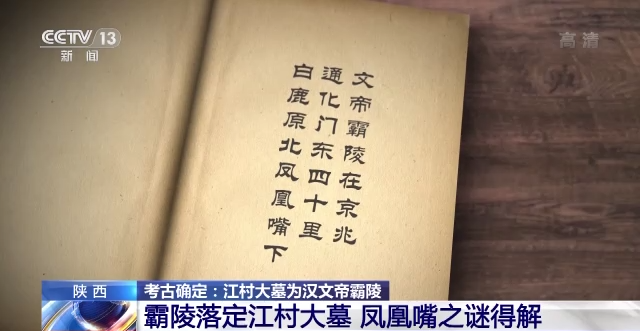 CCTV 13
新闻
高清
文帝霸陵在京兆
通化门东四十里
白鹿原北凤凰嘴下
陕西
考古确定：江村大墓为汉文帝霸陵
霸陵落定江村大墓 凤凰嘴之谜得解